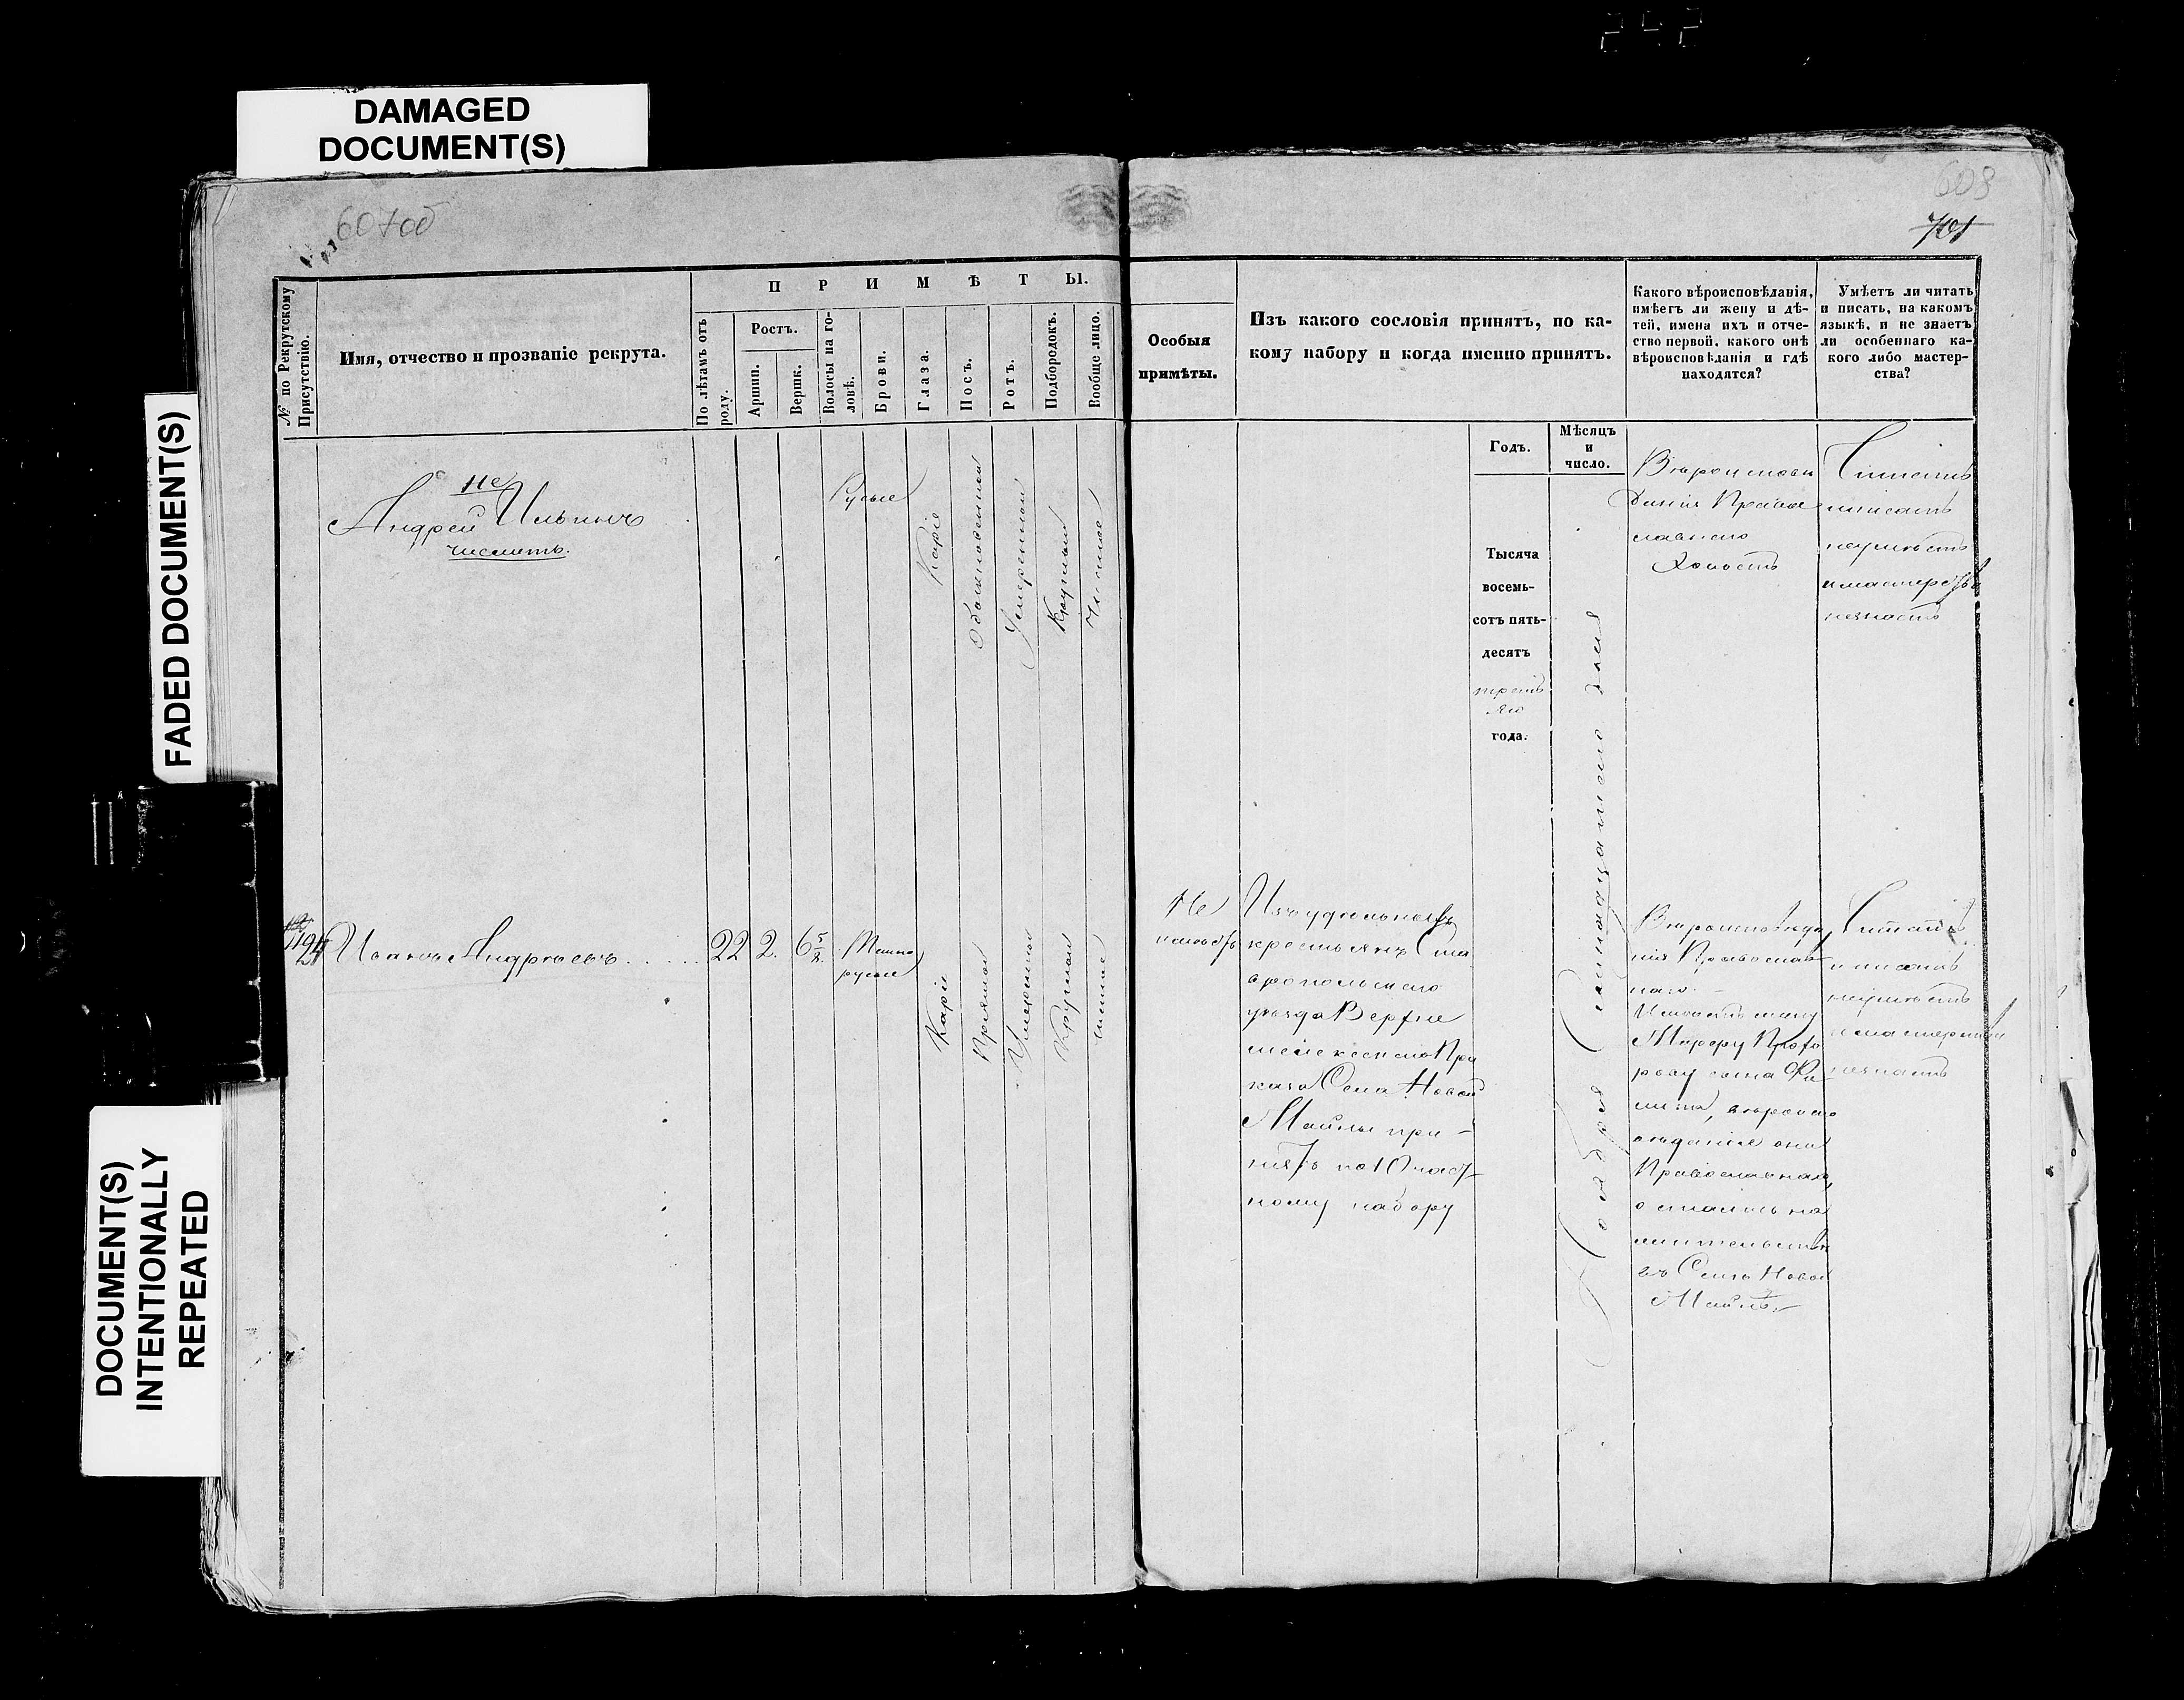 242
DAMAGED
DOCUMENT(S)
FADED DOCUMENT(S)
DOCUMENT(S)
INTENTIONALLY
REPEATED
607об
608
701
№ по Рекрутскому
Присутствію.
Имя, отчество и прозваніе рекрута.
ПРИМѢТЫ.
По лѣтамъ отъ
роду.
Ростъ.
Аршин.
Вершк.
Волосы на го-
ловѣ.
Брови.
Глаза.
Носъ.
Ротъ.
Подбородокъ.
Вообще лицо.
Особыя
примѣты.
Изъ какого сословія принятъ, по ка-
кому набору и когда именно принятъ.
Какого вѣроисповѣданія,
имѣетъ ли жену и дѣ-
тей, имена ихъ и отче-
ство первой, какого онѣ
вѣроисповѣданія и гдѣ
находятся?
Умѣетъ ли читать
и писать, на какомъ
языкѣ, и не знаетъ
ли особеннаго ка-
кого либо мастер-
ства?
Годъ.
Мѣсяцъ
и
число.
не
Андрей Ильинъ
числить.
Русые
Каріе
Обыкновенной
Умеренной
Круглой
Чистое
Тысяча
восемь-
сотъ пять-
десятъ
треть
яго
года.
Ноября Семнадцатого дня
Вѣроисповѣ
данія Право
славнаго
Холостъ
Читать
писать
неумѣетъ
и мастерства
незнаетъ
1194
Иванъ Андреевъ
22
2.
6 5/8
Темно
русые
Каріе
Прямой
Умеренной
Круглой
чистое
Не
имеетъ
Изъ удельныхъ
крестьянъ Ста
вропольскаго
уезда Верхне
Приказа Села Новой
Майны при-
нятъ по 10 част
ному набору
Вероисповеда
нія Православ
наго.
Имеетъ жену
Прохо
рову сына Фи
липа, вероиспо
ведания они
Православнаго,
остались на
жительстве
въ Селе Новой
Майнѣ.
Читать
и писать
неумѣетъ
и мастерства
незнаетъ